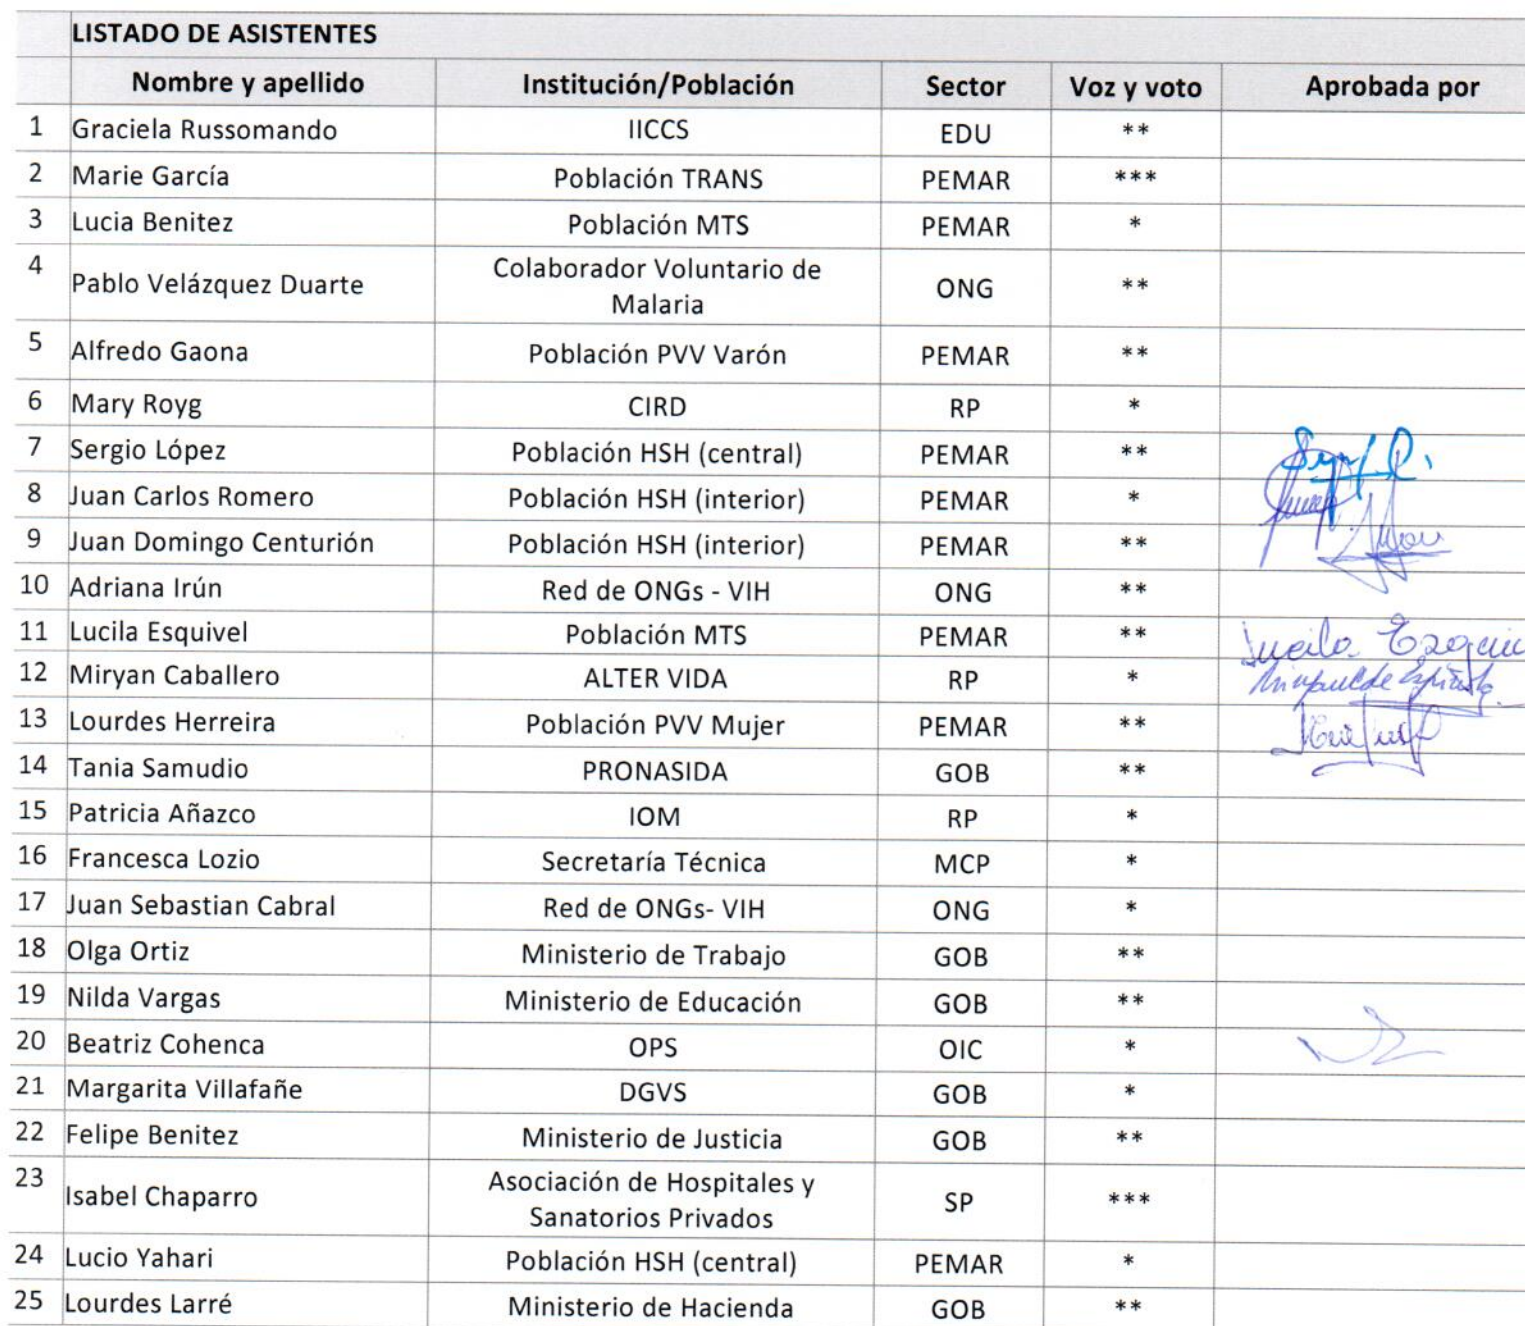 LISTADO DE ASISTENTES
Nombre y apellido Institución/Población Sector Voz y voto Aprobada por
1 Graciela Russomando IICCS EDU **
2 Marie García Población TRANS PEMAR ***
3 Lucia Benitez Población MTS PEMAR *
4 Pablo Velázquez Duarte Colaborador Voluntario de Malaria ONG **
5 Alfredo Gaona Población PVV Varón PEMAR **
6 Mary Royg CIRD RP *
7 Sergio López Población HSH (central) PEMAR **
8 Juan Carlos Romero Población HSH (interior) PEMAR *
9 Juan Domingo Centurión Población HSH (interior) PEMAR **
10 Adriana Irún Red de ONGs - VIH ONG **
11 Lucila Esquivel Población MTS PEMAR ** Lucila
12 Miryan Caballero ALTER VIDA RP *
13 Lourdes Herreira Población PVV Mujer PEMAR **
14 Tania Samudio PRONASIDA GOB **
15 Patricia Añazco IOM RP *
16 Francesca Lozio Secretaría Técnica MCP *
17 Juan Sebastian Cabral Red de ONGs- VIH ONG *
18 Olga Ortiz Ministerio de Trabajo GOB **
19 Nilda Vargas Ministerio de Educación GOB **
20 Beatriz Cohenca OPS OIC *
21 Margarita Villafañe DGVS GOB *
22 Felipe Benitez Ministerio de Justicia GOB **
23 Isabel Chaparro Asociación de Hospitales y Sanatorios Privados SP ***
24 Lucio Yahari Población HSH (central) PEMAR *
25 Lourdes Larré Ministerio de Hacienda GOB **